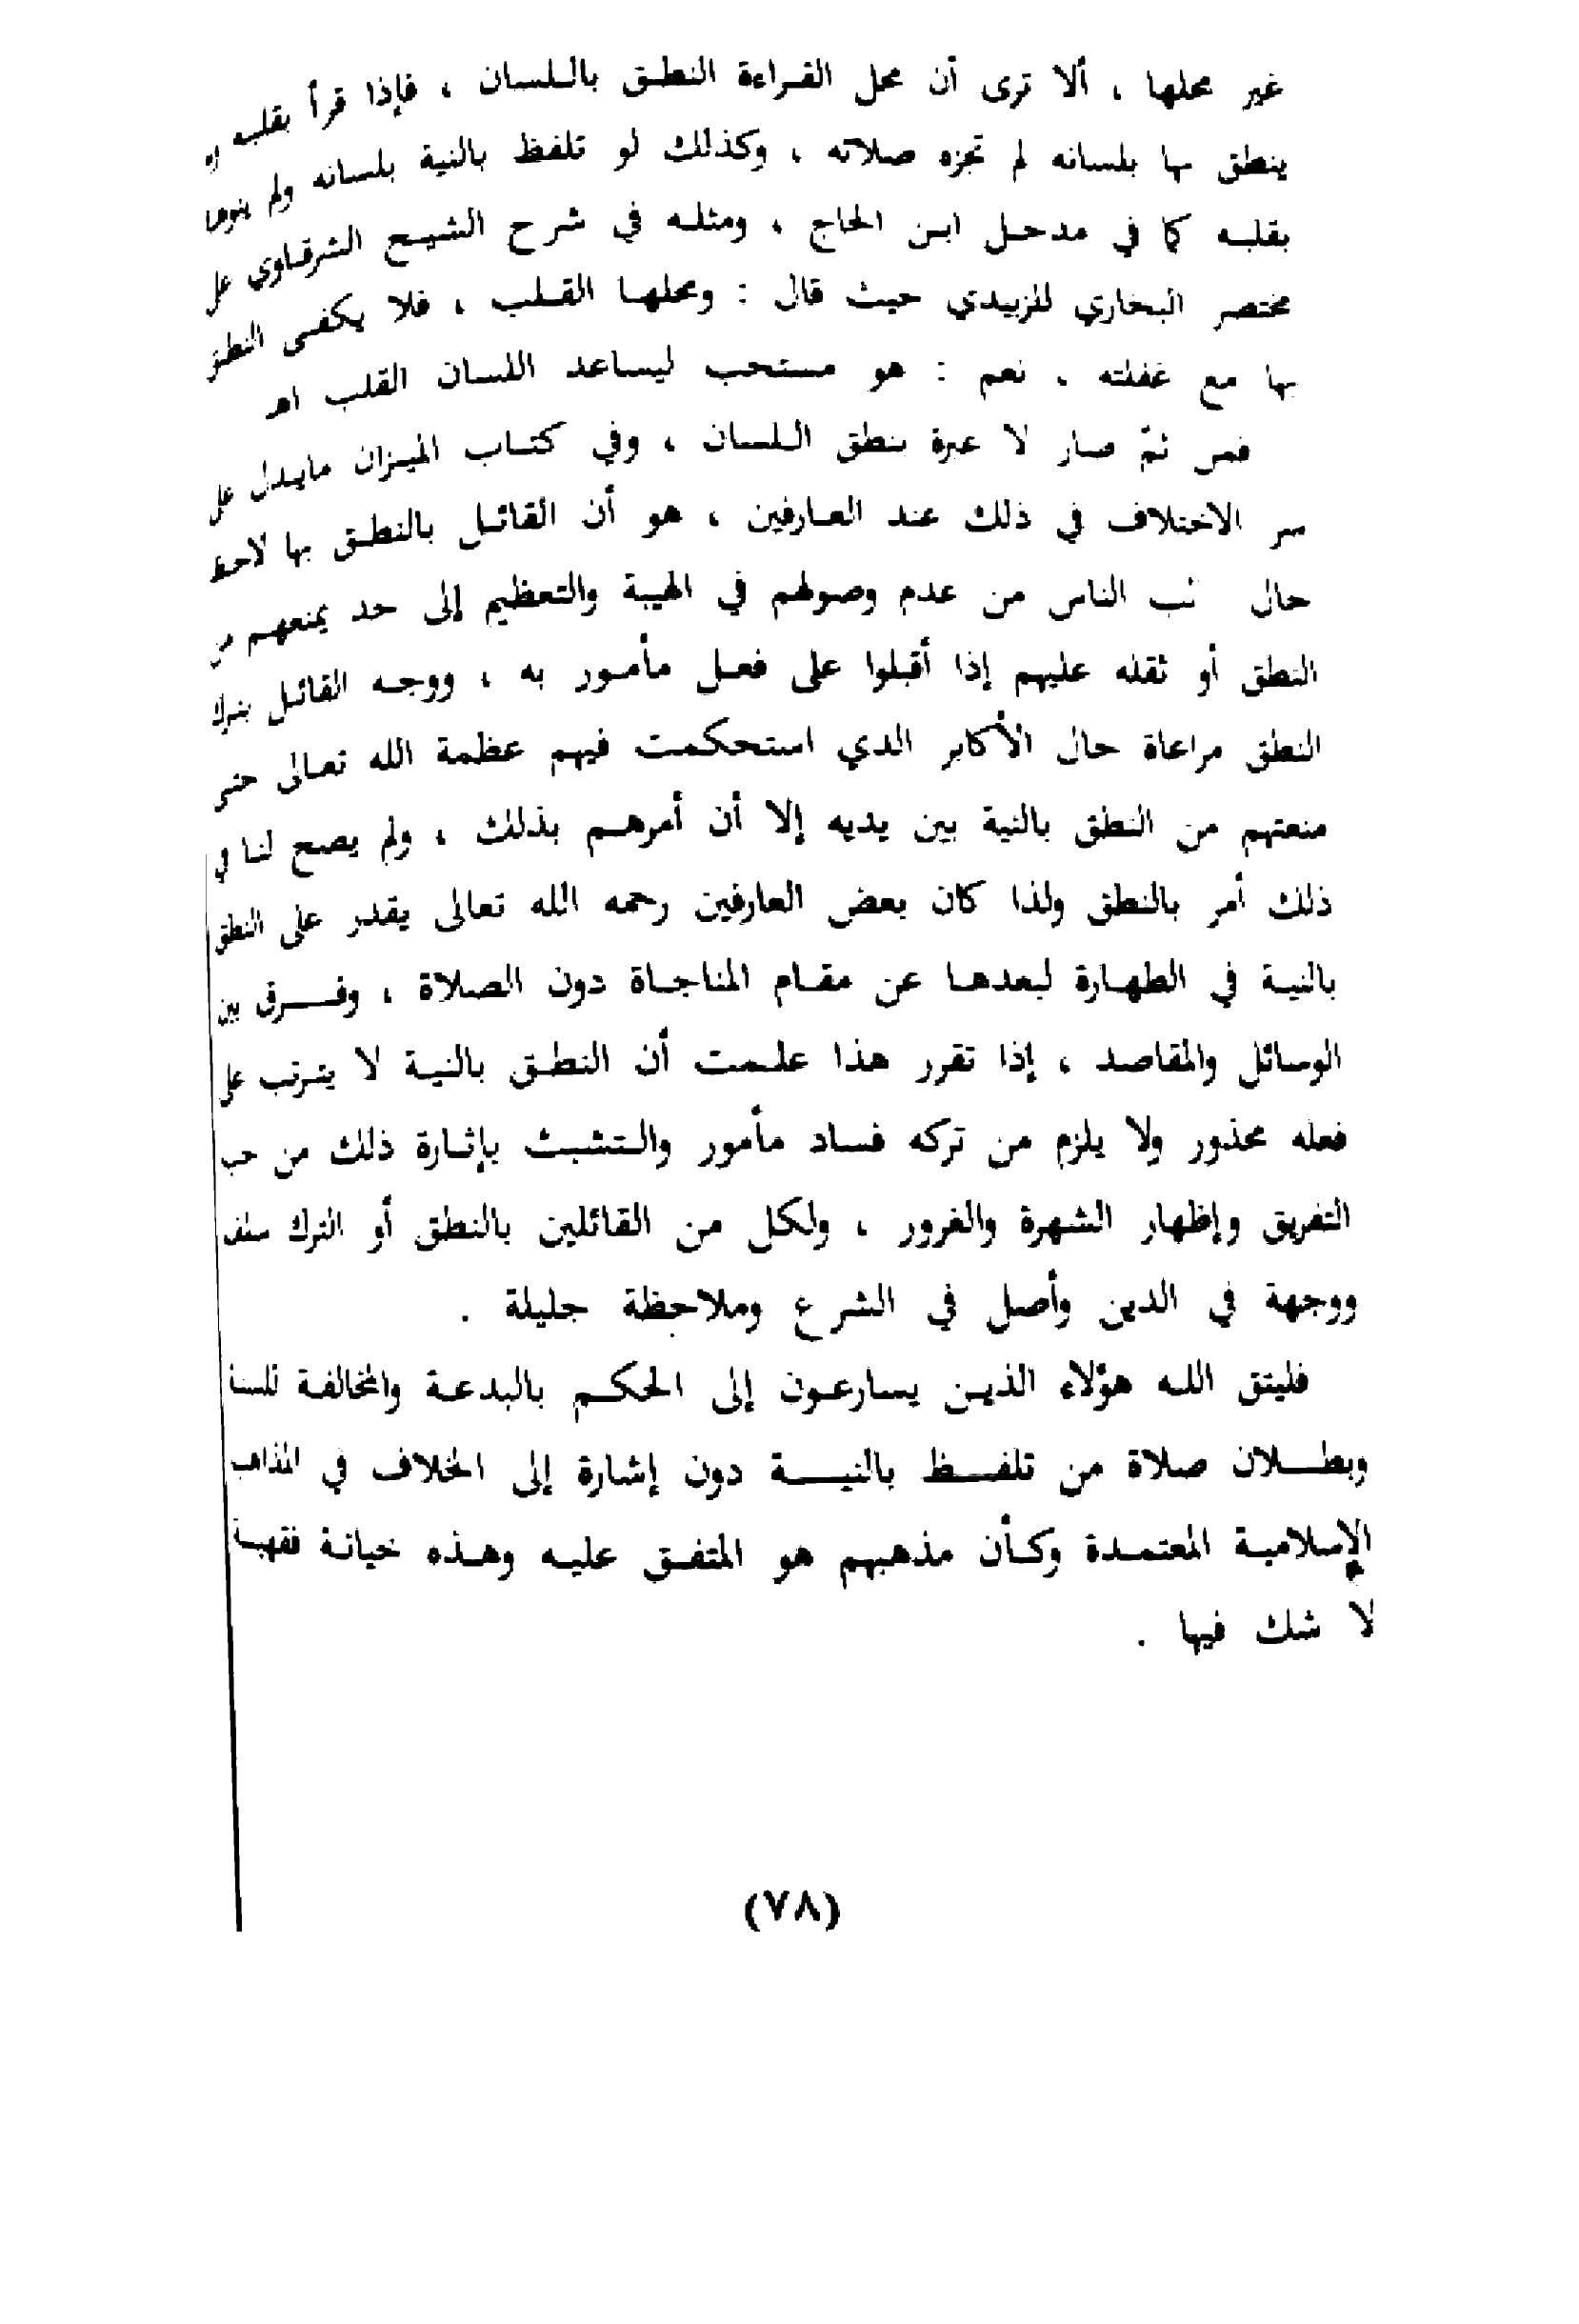 غير محلها ، ألا ترى أن محل القراءة النطق باللسان ، فإذا قرأ بقلبه
ينطق بها بلسانه لم تجزه صلاته ، وكذلك لو تلفظ بالنية بلسانه ولم ينوها
بقلبه كما في مدخل ابن الحاج ، ومثله في شرح الشيخ الشرقاوي على
مختصر البخاري للزبيدي حيث قال : ومحلها القلب ، فلا يكفى النطق
بها مع غفلته . نعم : هو مستحب ليساعد اللسان القلب اهـ
فمن ثمّ صار لا عبرة بنطق اللسان ، وفي كتاب الميزان مايدل على
سر الاختلاف في ذلك عند العارفين ، هو أن القائل بالنطق بها لاحظ
حال الناس من عدم وصولهم في الهيبة والتعظيم إلى حد يمنعهم من
النطق أو ثقله عليهم إذا أقبلوا على فعل مأمور به ، ووجه القائل بترك
النطق مراعاة حال الأكابر الذي استحكمت فيهم عظمة الله تعالى حتى
منعتهم من النطق بالنية بين يديه إلا أن أمرهم بذلك ، ولم يصح لنا في
ذلك أمر بالنطق ولذا كان بعض العارفين رحمه الله تعالى يقدر على النطق
بالنية في الطهارة لبعدها عن مقام المناجاة دون الصلاة ، وفرق بين
الوسائل والمقاصد ، إذا تقرر هذا علمت أن النطق بالنية لا يترتب على
فعله محذور ولا يلزم من تركه فساد مأمور والتشبث بإثارة ذلك من حب
التفريق وإظهار الشهرة والغرور ، ولكل من القائلين بالنطق أو الترك سلف
ووجهة في الدين وأصل في الشرع وملاحظة جليلة .
فليتق الله هؤلاء الذين يسارعون إلى الحكم بالبدعة والمخالفة للسنة
وبطلان صلاة من تلفظ بالنية دون إشارة إلى الخلاف في المذاهب
الإسلامية المعتمدة وكأن مذهبهم هو المتفق عليه وهذه خيانة فقهية
لا شك فيها .
(٧٨)